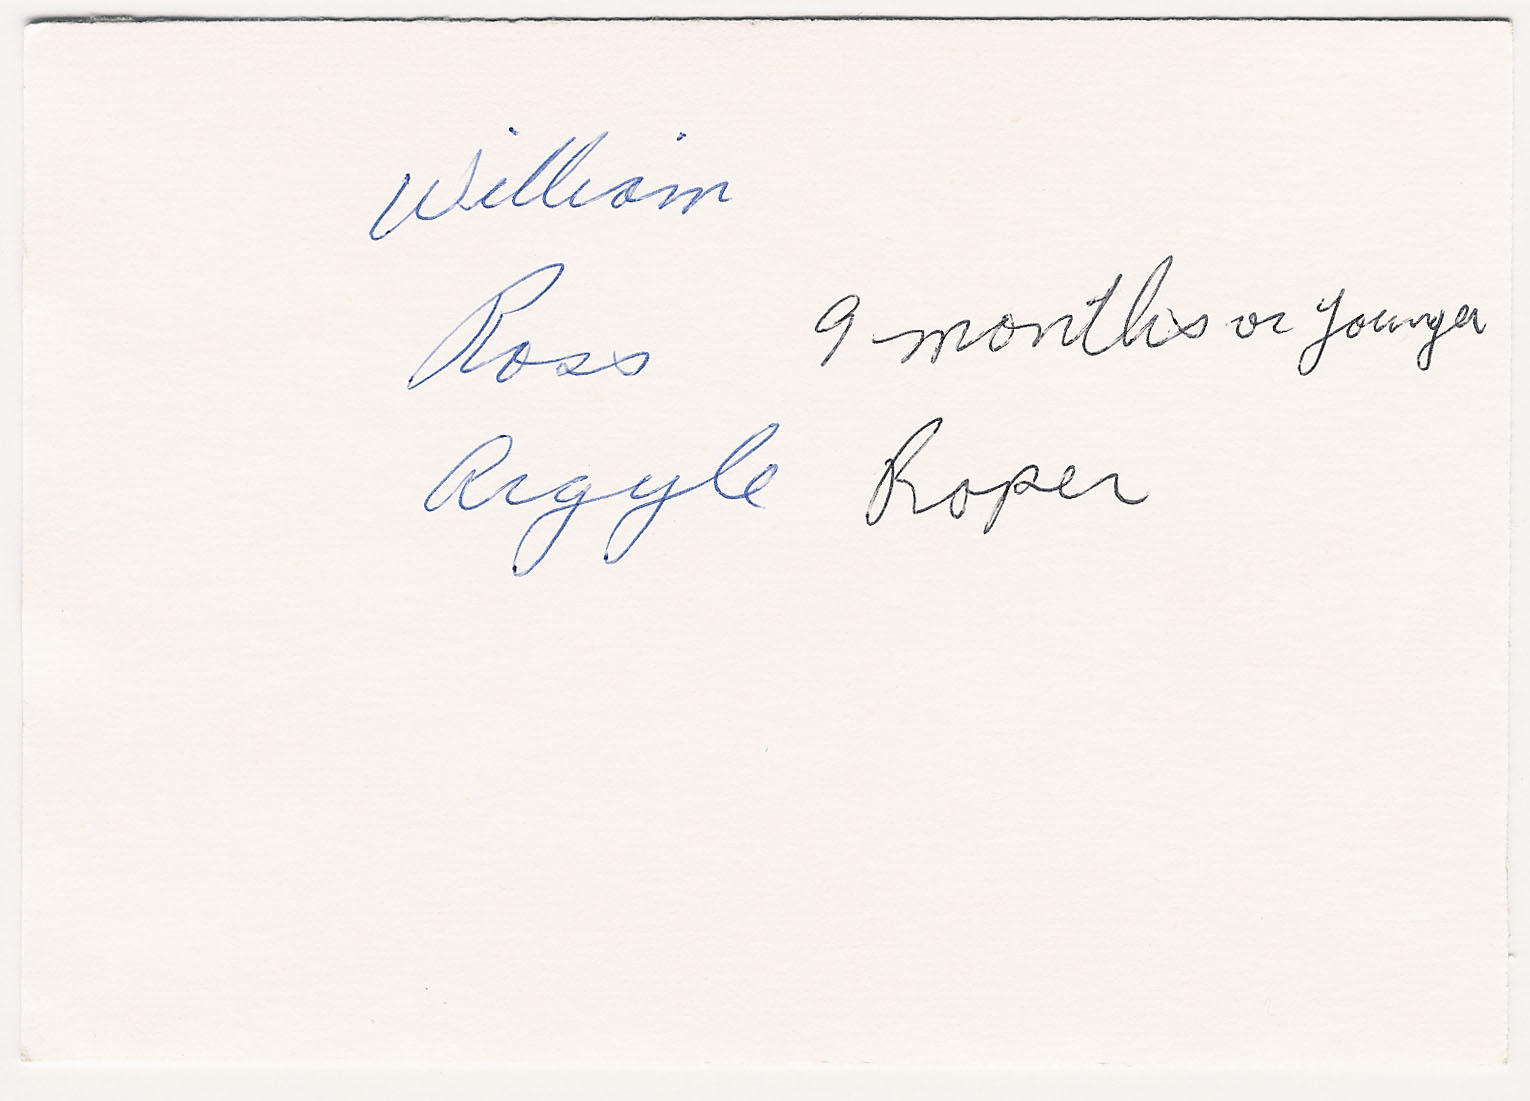 William
Ross 9 months or younger
Argyle Roper